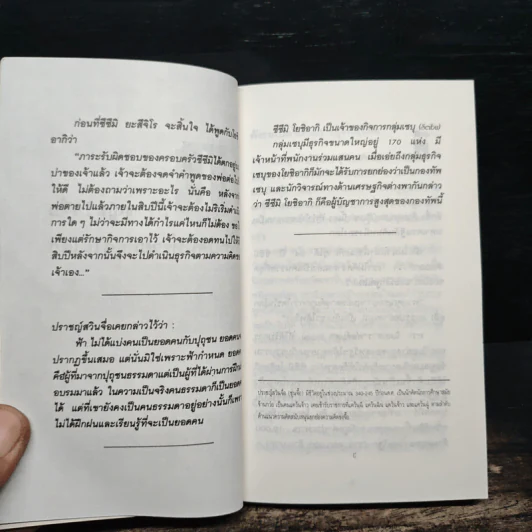 ก่อนที่ซึซึมิ ยะสึจิโร จะสิ้นใจ ได้พูดกับโย
อากิว่า
"ภาระรับผิดชอบของครอบครัวซึซึมิได้ตกอยู่
บ่าของเจ้าแล้ว เจ้าจะต้องจดจำคำพูดของพ่อต่อไป
ให้ดี ไม่ต้องถามว่าเพราะอะไร นั่นคือ หลังจาก
พ่อตายไปแล้วภายในสิบปีนี้เจ้าจะต้องไม่ริเริ่มดำเนิน
การใด ๆ ไม่ว่าจะมีทางได้กำไรแค่ไหนก็ไม่ต้อง
เพียงแต่รักษากิจการเอาไว้ เจ้าจะต้องอดทนไปให้
สิบปีหลังจากนั้นจึงจะไปดำเนินธุรกิจตามความคิดของ
เจ้าเอง..."
ปราชญ์สวินจื่อเคยกล่าวไว้ว่า :
ฟ้า ไม่ได้แบ่งคนเป็นยอดคนกับปุถุชน ยอดคน
ปรากฏขึ้นเสมอ แต่นั่นมิใช่เพราะฟ้ากำหนด ยอด
คือผู้ที่มาจากปุถุชนธรรมดาแต่เป็นผู้ที่ได้ผ่านการฝึก
อบรมมาแล้ว ในความเป็นจริงคนธรรมดาก็เป็นยอด
ได้ แต่ที่เขายังคงเป็นคนธรรมดาอยู่อย่างนั้นก็เพราะ
ไม่ได้ฝึกฝนและเรียนรู้ที่จะเป็นยอดคน
ซึซึมิ โยชิอากิ เป็นเจ้าของกิจการกลุ่มเซบุ
กลุ่มเซบุมีธุรกิจขนาดใหญ่อยู่ 170 แห่ง มี
เจ้าหน้าที่พนักงานร่วมแสนคน เมื่อเอ่ยถึงกลุ่มธุรกิจ
เซบุของโยชิอากิก็มักจะได้รับการยกย่องว่าเป็นกองทัพ
เซบุ และนักวิจารณ์ทางด้านเศรษฐกิจต่างพากันกล่าว
ว่า ซึซึมิ โยชิอากิ ก็คือผู้บัญชาการสูงสุดของกองทัพนี้